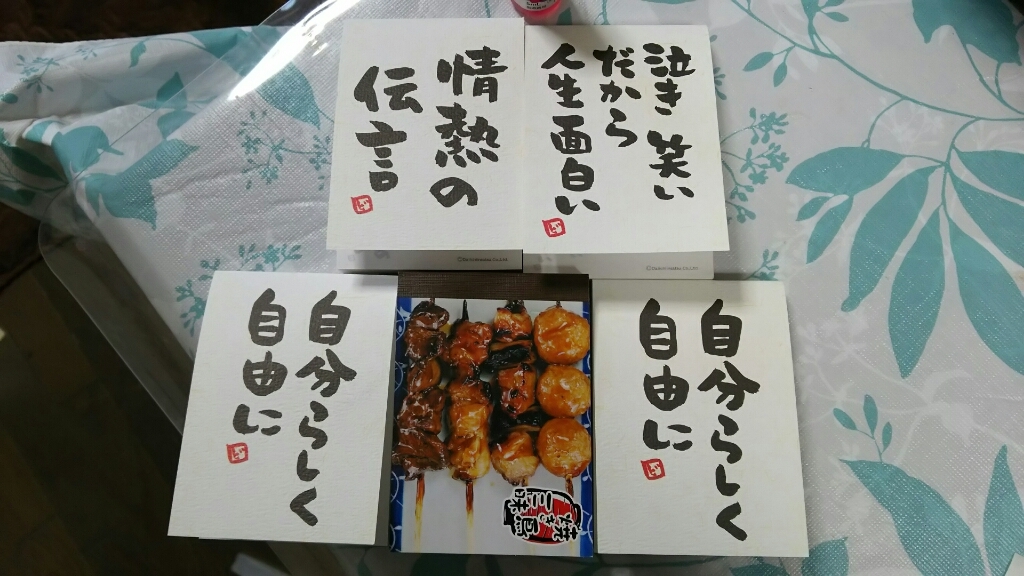 情熱の
伝言
泣き 笑い
だから
人生面白い
自分らしく
自由に
焼き鳥
三昧
自分らしく
自由に